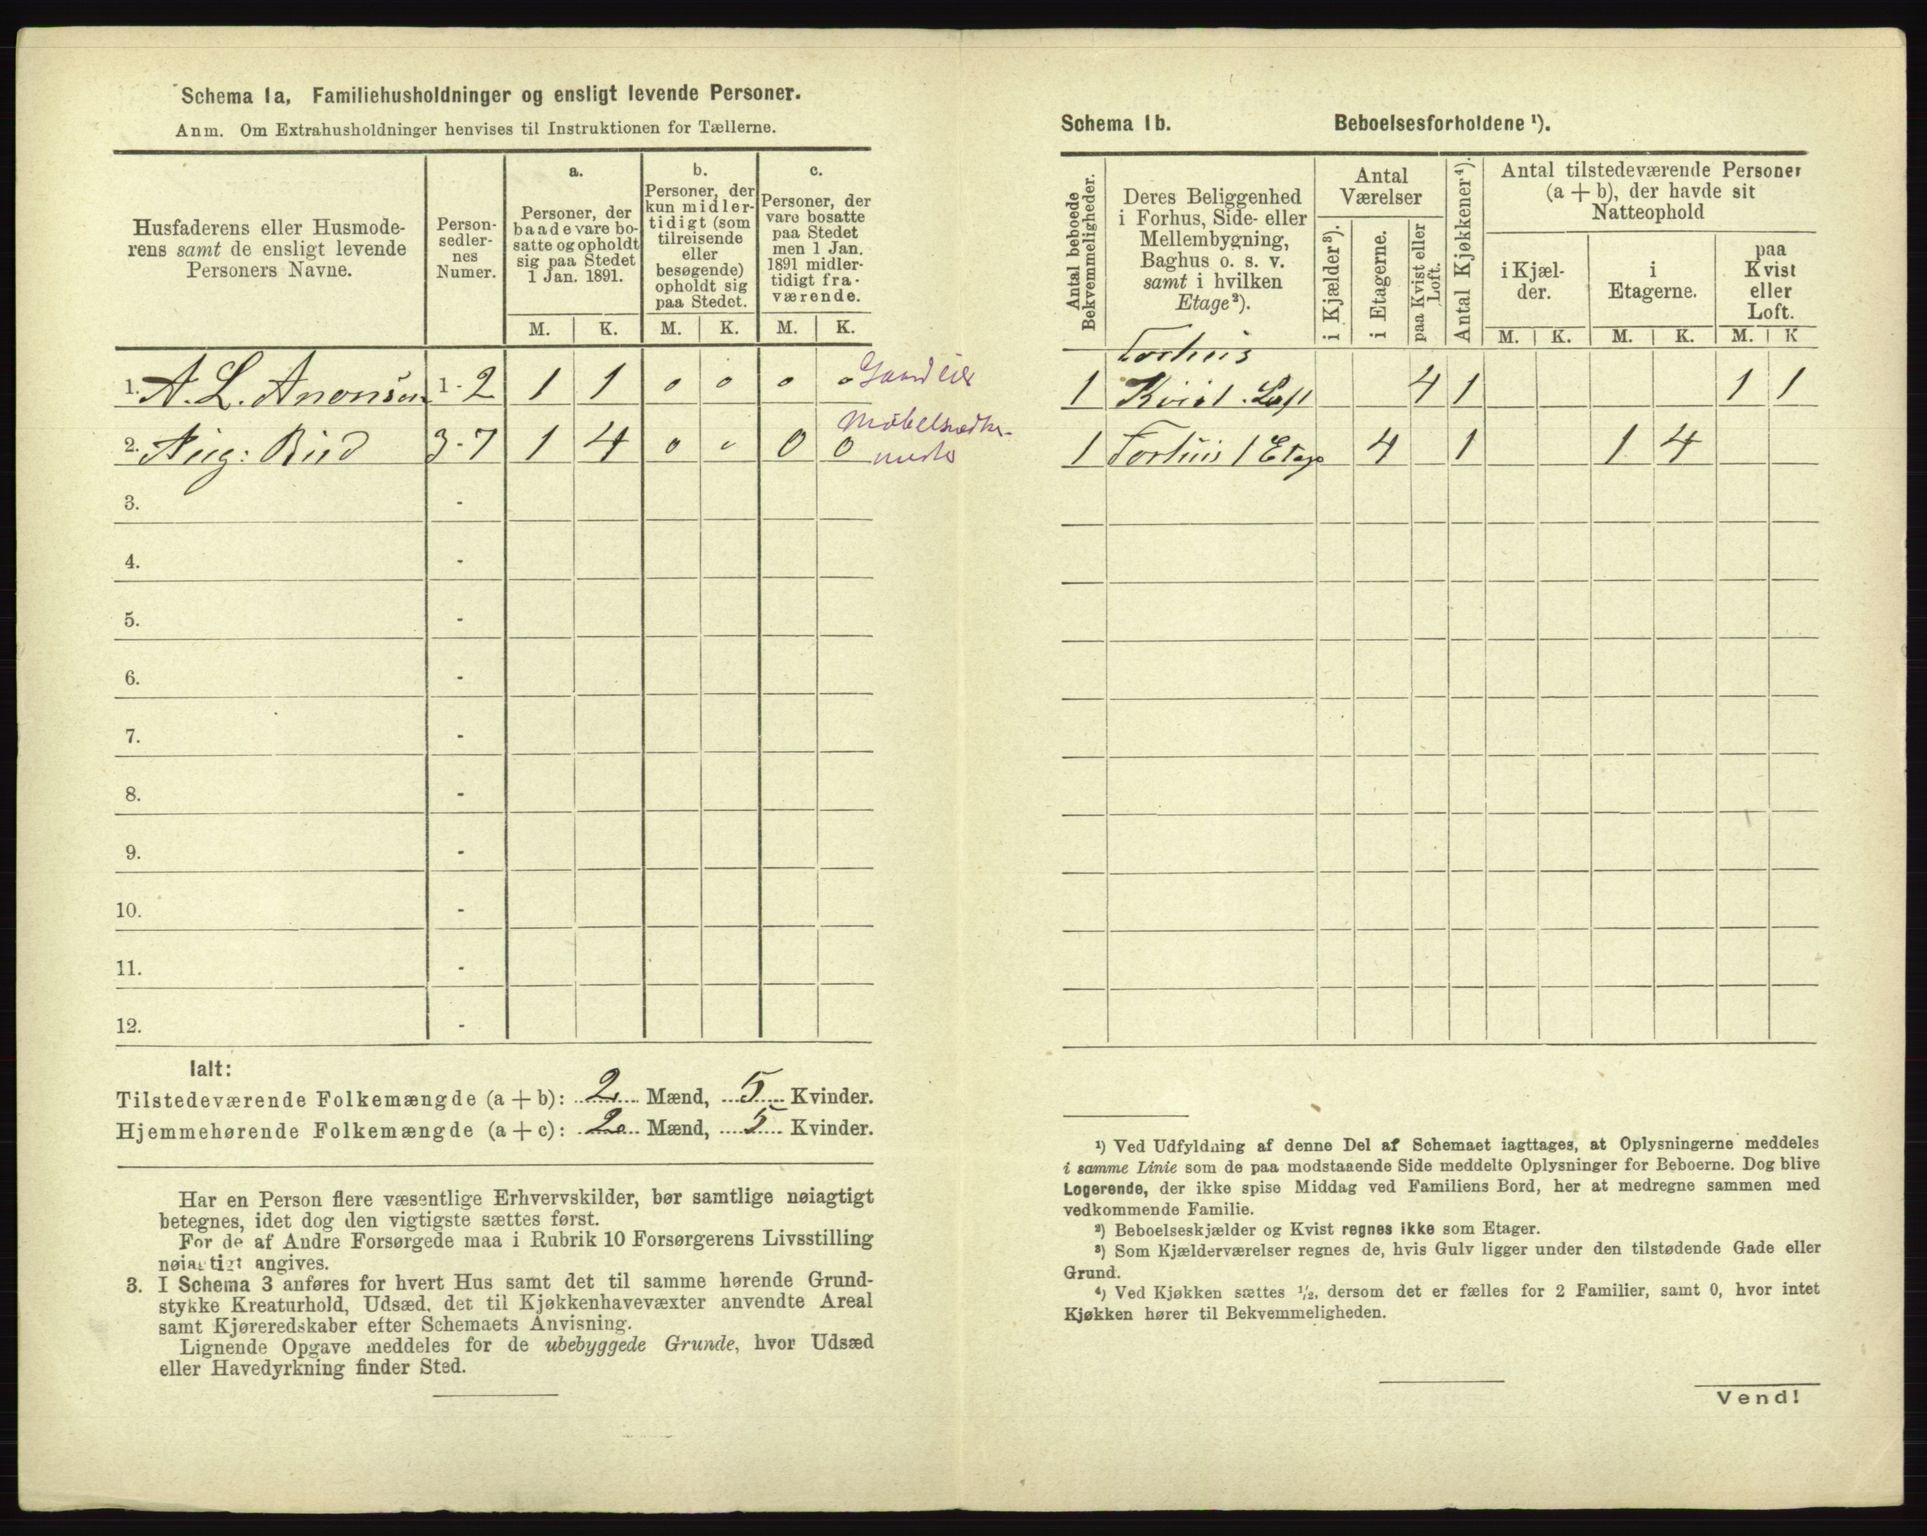 Schema 1a, Familiehusholdninger og ensligt levende Personer.
Anm. Om Extrahusholdninger henvises til Instruktionen for Tællerne.
Husfaderens eller Husmode-
rens samt de ensligt levende
Personers Navne.
Person-
sedler-
nes
Numer.
a.
Personer, der
baade vare bo-
satte og opholdt
sig paa Stedet
1 Jan. 1891.
b.
Personer, der
kun midler-
tidigt (som
tilreisende
eller
besøgende)
opholdt sig
paa Stedet.
c.
Personer, der
vare bosatte
paa Stedet
men 1 Jan.
1891 midler-
tidigt fra-
værende.
M. K. M. K. M. K.
1. A. L. Anonsen 1 - 2 1 1 0 0 0 0 Gaardeier
2. Aug: Bud 3 - 7 1 4 0 0 0 0 Møbelsnedker-
3. -
4. -
5. -
6. -
7. -
8. -
9. -
10. -
11. -
12. -
Ialt:
Tilstedeværende Folkemængde (a + b): 2 Mænd, 5 Kvinder.
Hjemmehørende Folkemængde (a + c): 2 Mænd, 5 Kvinder.
Har en Person flere væsentlige Erhvervskilder, bør samtlige nøiagtigt
betegnes, idet dog den vigtigste sættes først.
For de af Andre Forsørgede maa i Rubrik 10 Forsørgerens Livsstilling
nøiagtigt angives.
3. I Schema 3 anføres for hvert Hus samt det til samme hørende Grund-
stykke Kreaturhold, Udsæd, det til Kjøkkenhavevæxter anvendte Areal
samt Kjøreredskaber efter Schemaets Anvisning.
Lignende Opgave meddeles for de ubebyggede Grunde, hvor Udsæd
eller Havedyrkning finder Sted.
Schema 1b. Beboelsesforholdene ¹).
Antal beboede
Bekvemmeligheder.
Deres Beliggenhed
i Forhus, Side- eller
Mellembygning,
Baghus o. s. v.
samt i hvilken
Etage²).
Antal
Værelser
i Kjælder³).
i Etagerne.
paa Kvist eller
Loft.
Antal Kjøkkener⁴).
Antal tilstedeværende Personer
(a + b), der havde sit
Natteophold
i Kjæl-
der.
i
Etagerne.
paa
Kvist
eller
Loft.
M. K. M. K. M. K
Forhus
1 Kvist. Loft 4 1 1 1
1 Forhus 1 Etage 4 1 1 4
¹) Ved Udfyldning af denne Del af Schemaet iagttages, at Oplysningerne meddeles
i samme Linie som de paa modstaaende Side meddelte Oplysninger for Beboerne. Dog blive
Logerende, der ikke spise Middag ved Familiens Bord, her at medregne sammen med
vedkommende Familie.
²) Beboelseskjælder og Kvist regnes ikke som Etager.
³) Som Kjælderværelser regnes de, hvis Gulv ligger under den tilstødende Gade eller
Grund.
⁴) Ved Kjøkken sættes ½, dersom det er fælles for 2 Familier, samt 0, hvor intet
Kjøkken hører til Bekvemmeligheden.
Vend!